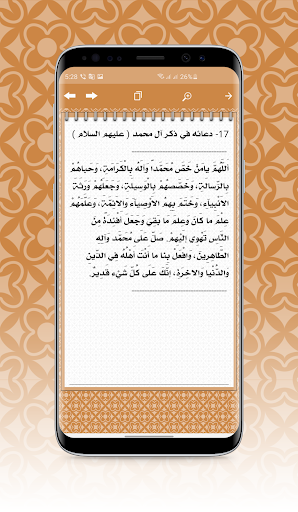 5:28
26%
17- دعائه في ذكر آل محمد ( عليهم السلام )
اَللَّهُمَّ يامَنْ خَصَّ مُحَمَّداً وَآلَهُ بِالْكَرامَةِ، وَحَباهُمْ
بِالرِّسالَةِ، وَخَصَّصَهُمْ بِالْوَسيلَةِ، وَجَعَلَهُمْ وَرَثَةَ
الأنْبِياءِ، وَخَتَمَ بِهِمُ الأوْصِياءَ وَالائِمَّةَ، وَعَلَّمَهُمْ
عِلْمَ ما كانَ وَعِلْمَ ما بَقِيَ وَجَعَلَ أفْئِدَةً مِنَ
النّاسِ تَهْوي إلَيْهِمْ. صَلِّ عَلى مُحَمَّد وَآلِهِ
الطّاهِرينَ، وَافْعَلْ بِنا ما أنْتَ أهْلُهُ فِي الدّينِ
وَالدُّنْيا وَالاخِرَةِ، إنَّكَ عَلى كُلِّ شَيْء قَديرٌ.